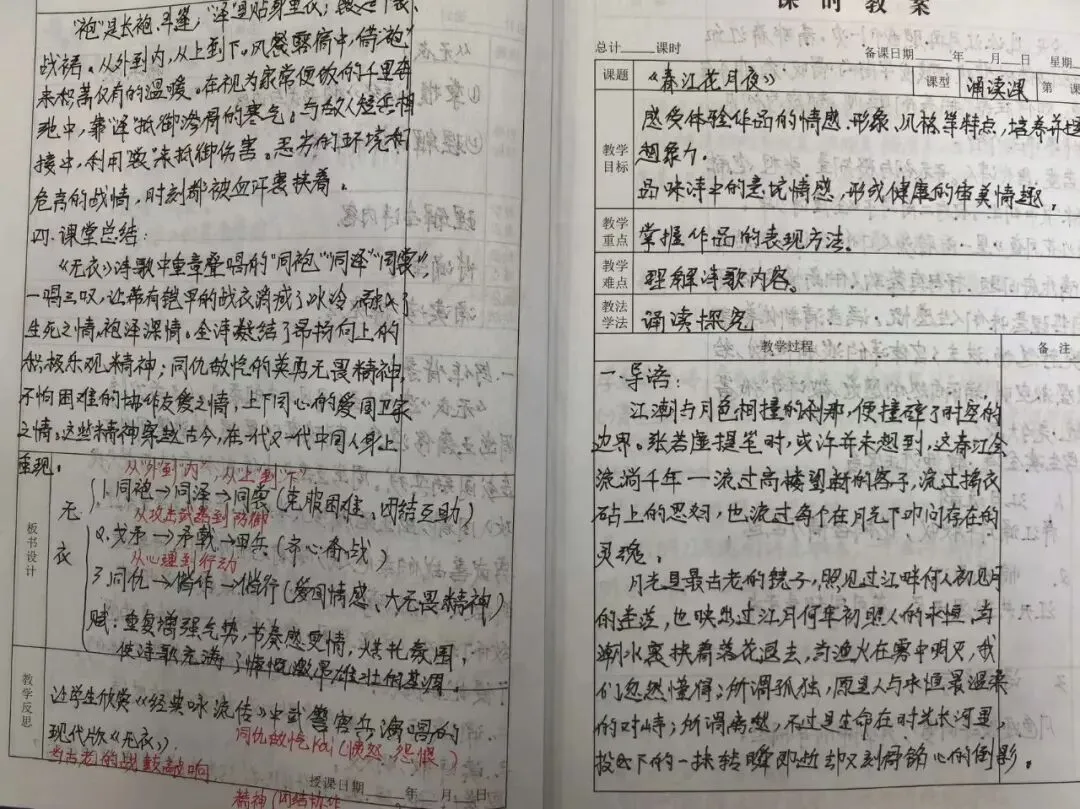 "袍"是长袍、斗篷，"泽"是贴身里衣，
战裙。从外到内，从上到下。风餐露宿中，借"袍"
来积蓄仅有的温暖。在视为家常便饭的千里奔
驰中，靠"泽"抵御渗骨的寒气。与敌人短兵相
接中，利用"裳"来抵御伤害。恶劣的环境和
危害的战情，时刻都被血汗裹挟着。
四、课堂总结：
《无衣》诗歌中重章叠唱的"同袍""同泽""同裳"，
一唱三叹，让带有铠甲的战衣消减了冰冷，融入了
生死之情，袍泽深情。全诗凝结了昂扬向上的
积极乐观精神；同仇敌忾的英勇无畏精神，
不怕困难的协作友爱之情，上下同心的爱国卫家
之情。这些精神穿越古今，在一代又一代中国人身上
重现。
板书设计
无衣
从"外"到"内"，从"上"到"下"
1.同袍→同泽→同裳（克服困难、团结互助）
从攻击武器到防御
2.戈矛→矛戟→甲兵（齐心备战）
从心理到行动
3.同仇→偕作→偕行（爱国情感、大无畏精神）
赋：重复增强气势，节奏感变情，烘托氛围，
使诗歌充满了慷慨激昂雄壮的基调。
教学反思
让学生欣赏《经典咏流传》中武警官兵演唱的
现代版《无衣》。
同仇敌忾kài（愤然、怨恨）
当古老的战鼓敲响
授课日期 年 月 日
精神（团结协作
课时教案
总计 课时 备课日期 年 月 日 星期
课题 《春江花月夜》 课型 诵读课 第 课
教学目标
感受体验作品的情感、形象、风格等特点，培养并提
想象力。
品味诗中的意境情感，形成健康的审美情趣。
教学重点 掌握作品的表现方法。
教学难点 理解诗歌内容。
教法学法 诵读探究
教学过程 备注
一、导语：
江潮与月色相撞的刹那，便撞碎了时空的
边界。张若虚提笔时，或许并未想到，这春江会
流淌千年——流过高楼望断的客子，流过捣衣
砧上的思妇，也流过每个在月光下叩问存在的
灵魂。
月光是最古老的镜子，照见过江畔何人初见月
的迷茫，也映出过江月何年初照人的永恒，当
潮水裹挟着落花退去，当渔火在雾中明灭，我
们忽然懂得：所谓孤独，原是人与永恒最温柔
的对峙；所谓怅然，不过是生命在时光长河里，
投下的一抹转瞬即逝却又刻骨铭心的倒影。